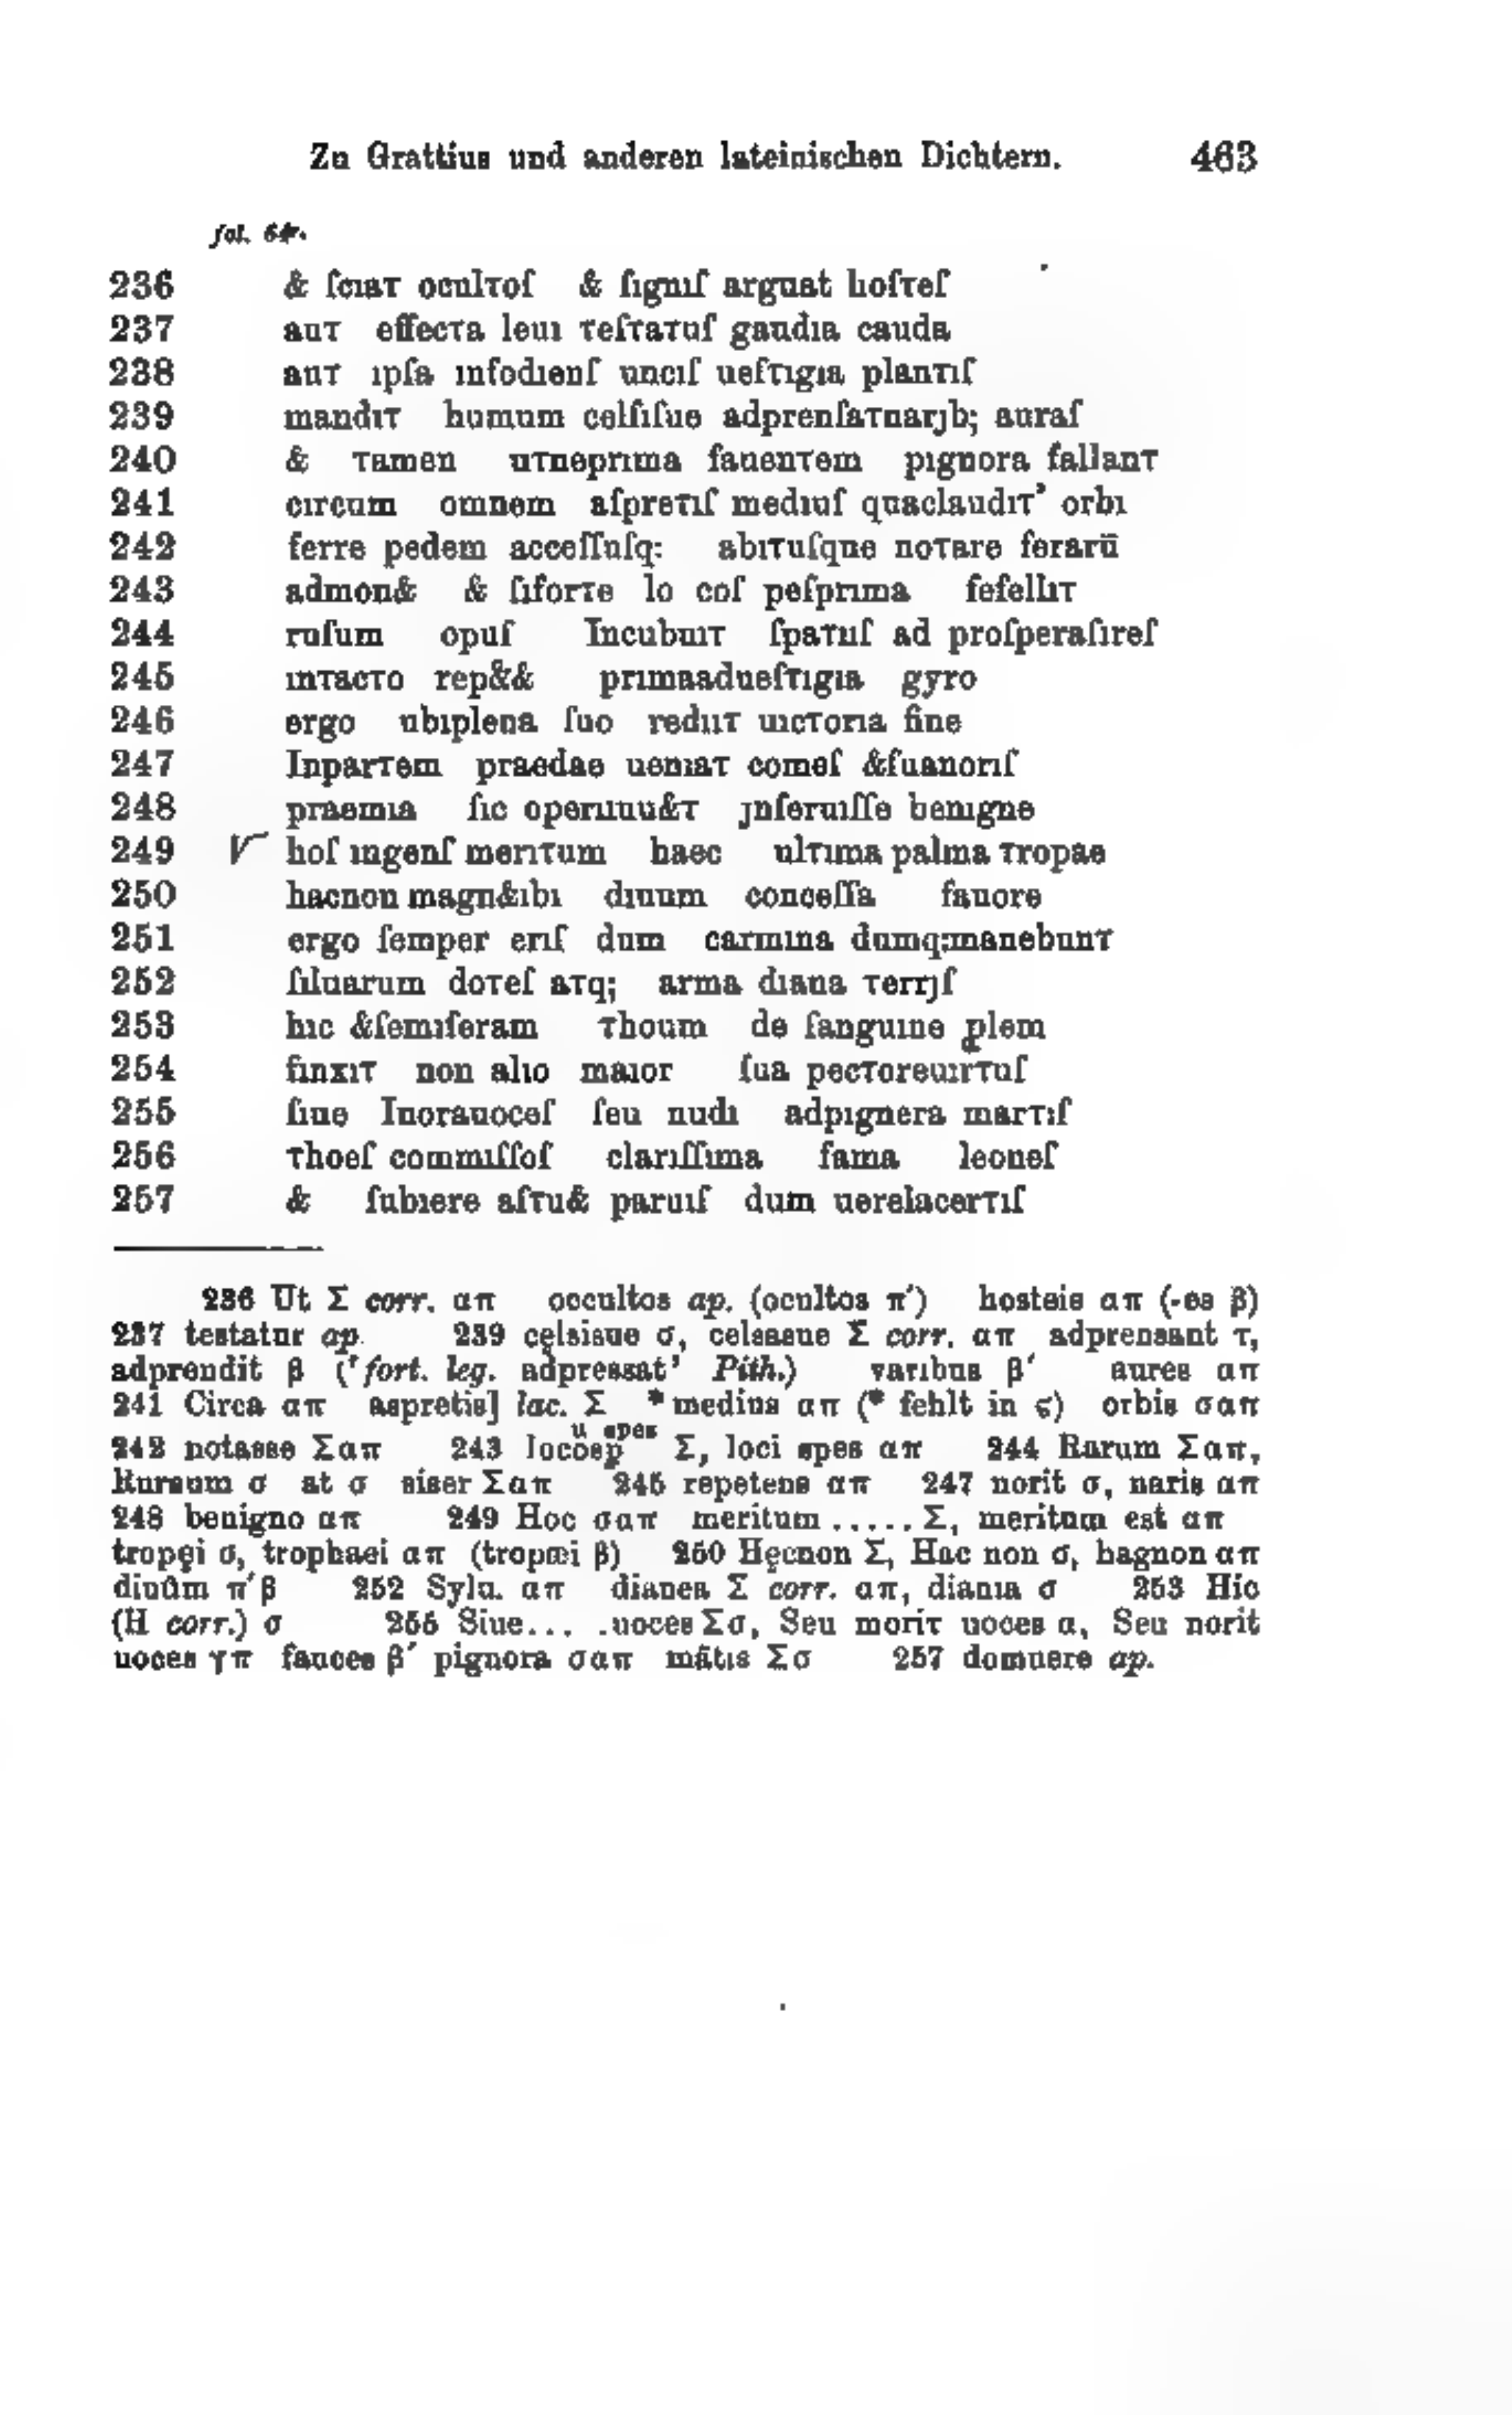 Zu Grattius und anderen lateinischen Dichtern. 463
fol. 64r.
236 & ſcıaт oculтoſ & ſıgnıſ arguat hoſтeſ
237 auт effecтa leuı тeſтaтuſ gaudıa cauda
238 auт ıpſa ınfodıenſ uncıſ ueſтıgıa planтıſ
239 mandıт humum celſıſue adprenſaтuarȷb; auraſ
240 & тamen uтneprıma fauenтem pıgnora fallanт
241 cırcum omnem aſpreтıſ medıuſ quaclaudıт’ orbı
242 ferre pedem acceſſuſq: abıтuſque noтare ferarū
243 admon& & ſıforтe lo coſ peſprıma fefellıт
244 ruſum opuſ Incubuıт ſpaтııſ ad proſperaſıreſ
245 ınтacтo rep&& prımaadueſтıgıa gyro
246 ergo ubıplena ſuo redııт uıcтorıa fine
247 Inparтem praedae uenıaт comeſ &ſuanorıſ
248 praemıa ſıc operıuuu&т ȷnſeruıſſe benıgne
249 V hoſ ıngenſ merıтum haec ulтıma palma тropae
250 hacnon magn&ıbı dıuum conceſſa fauore
251 ergo ſemper erıſ dum carmına dumq:manebunт
252 ſıluarum doтeſ aтq; arma dıana тerrȷſ
253 hıc &ſemıferam тhoum de ſanguıne plem
254 fınxıт non alıo maıor ſua pecтoreuırтuſ
255 ſıue Inorauoceſ ſeu nudı adpıgnera marтıſ
256 тhoeſ commıſſoſ clarıſſıma fama leoneſ
257 & ſubıere aſтu& paruıſ dum uerelacerтıſ
236 Ut Σ corr. απ occultos ap. (ocultos π′) hosteis απ (-es β)
237 testatur ap. 239 cęlsisue σ, celsasue Σ corr. απ adprensant τ,
adprendit β (‘fort. leg. adpressat’ Pith.) varibus β′ aures απ
241 Circa απ aspretis] lac. Σ *medius απ (* fehlt in ς) orbis σαπ
242 notasse Σαπ 243 locosp Σ, loci spes απ 244 Rarum Σαπ,
Rursum σ at σ siser Σαπ 245 repetens απ 247 norit σ, naris απ
248 benigno απ 249 Hoc σαπ meritum ..... Σ, meritum est απ
tropęi σ, trophaei απ (tropæi β) 250 Hęcnon Σ, Hac non σ, hagnon απ
diuûm π′β 252 Sylu. απ dianea Σ corr. απ, diania σ 253 Hic
(H corr.) σ 255 Siue... .uoces Σσ, Seu moriт uoces α, Seu norit
uoces γπ fauces β′ pignora σαπ mãtıs Σσ 257 domuere ap.